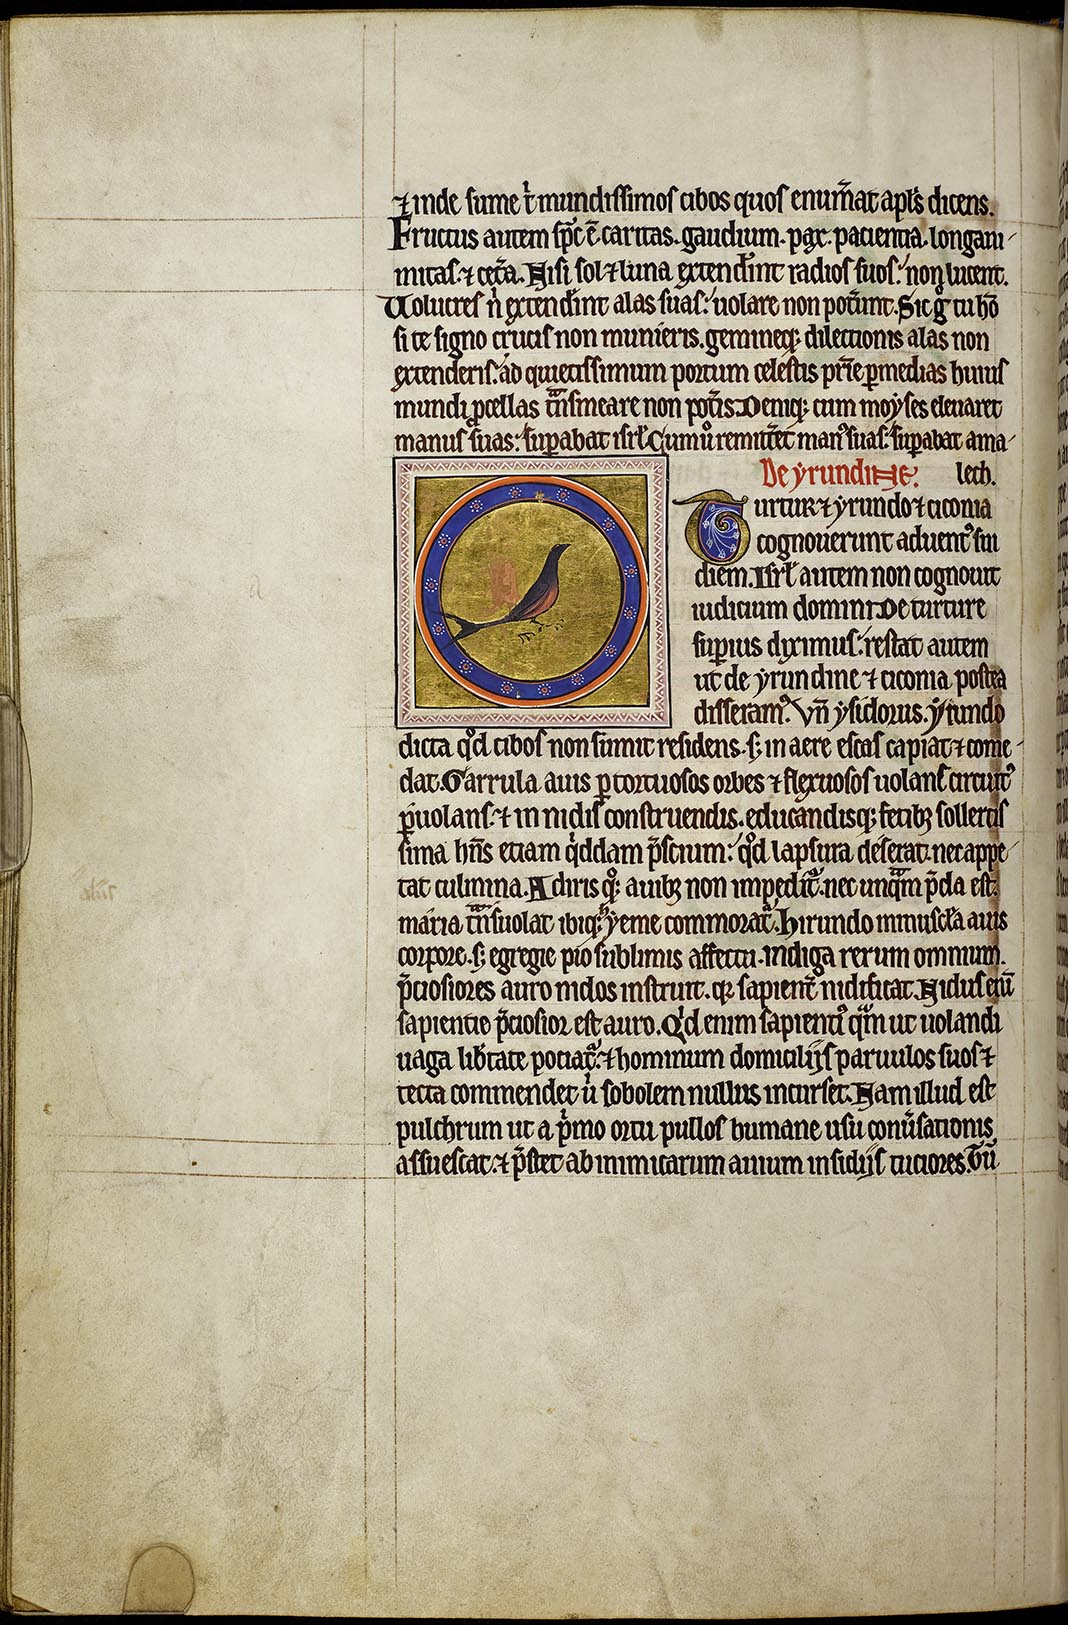 ⁊ inde sume t̾ mundissimos cibos quos enum̄at apl̄s dicens.
Fructus autem sp̄c ē. caritas. gaudium. pax. paciencia. longani-
mitas. ⁊ cet̄a. Nisi sol ⁊ luna extend̾int radios suos: non lucent.
Uolucres n̄ extend̾int alas suas: uolare non pot̾unt. Sic g̊ tu hō
si te signo crucis non munieris. gemineq; dilectionis alas non
extenderis. ad quietissimum portum celestis pr̄ie ꝑ medias huius
mundi ꝓcellas tͣnsmeare non pot̾is. Deniq; cum moyses eleuaret
manus suas: suꝑabat isrł. Cum u̾o remitt̾et manꝰ suas: suꝑabat ama-
De yrundine. lech.
Turtur ⁊ yrundo ⁊ ciconia
cognouerunt aduentꝰ sui
diem. Isrł autem non cognouit
iudicium domini. De turture
suꝑius diximus: restat autem
ut de yrundine ⁊ ciconia postea
disseramꝰ. Vn̄ ysidorus. Yrundo
dicta qͦd cibos non sumit residens. s; in aere escas capiat ⁊ come-
dat. Garrula auis ꝑ tortuosos orbes ⁊ flexuosos uolans circuitꝰ
ꝑuolans. ⁊ in nidis construendis. educandisq; fetibꝫ sollertis
sima hn̄s etiam qͥddam p̄scium: qͦd lapsura deserat. nec appe-
tat culmina. A diris qͦq; auibꝫ non impeditᷣ. nec unqͣm p̄da est.
maria tͣnsuolat ibiq; hyeme commoratᷣ. Hirundo minuscl̄a auis
corpore. s; egregie pio sublimis affectu. indiga rerum omnium.
p̄ciosiores auro nidos instruit. qꝛ sapient̾ nidificat. Nidus eni̅
sapientie p̄ciosior est auro. Qͥd enim sapientiꝰ qͣm ut uolandi
uaga lib̾tate pociatᷣ: ⁊ hominum domiciliis paruulos suos ⁊
tecta commendet uͥ sobolem nullus incurset. Nam illud est
pulchrum ut a pͥmo ortu pullos humane usu conu̾sationis
assuescat. ⁊ p̄stet ab inimicarum auium insidiis tuciores. Tū